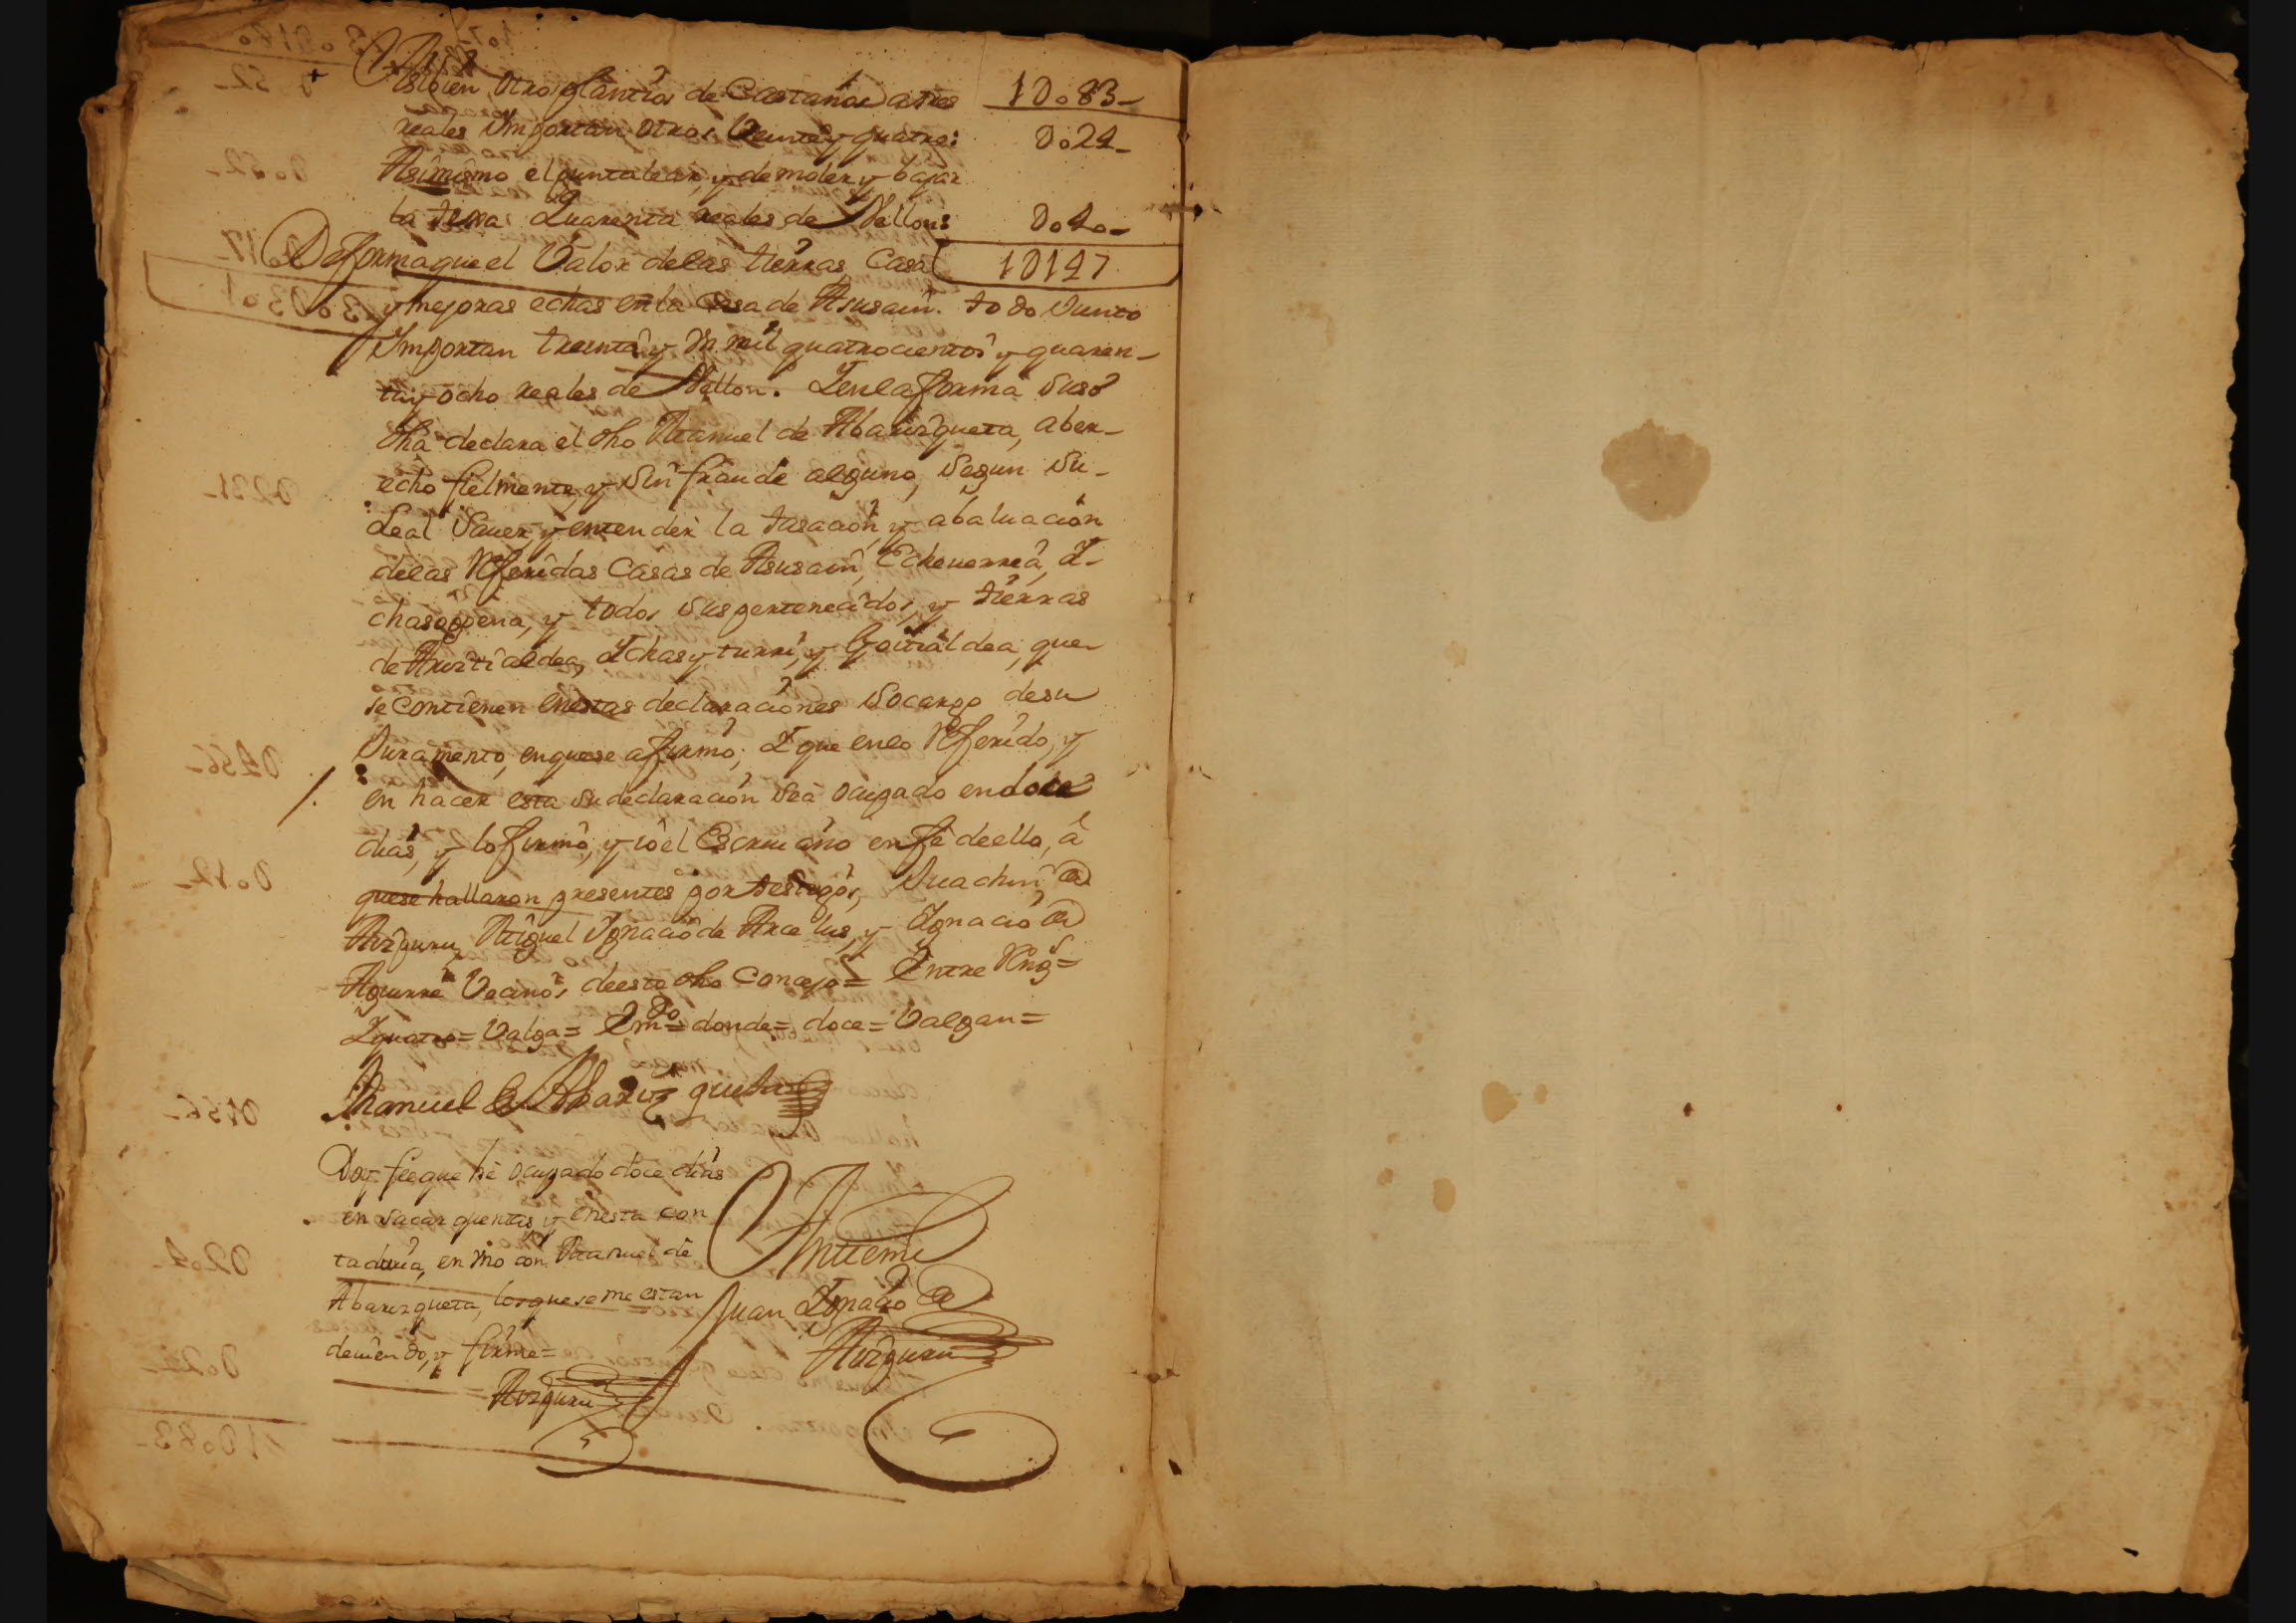 Asibien otros plantios de Castaños a tres 1D083_
reales Importan otros Veinte y quatro: D024_
Asimismo el puntalear, y demoler y bajar
la tierra: Quarenta reales de Vellon: D040_
De forma que el Valor de las tierras, Casa 1D147
y mejoras echas en la Casa de Asusain. todo Junto
Importan treinta y Un mil quatrocientos y quaren_
ta y ocho reales de Vellon. Y en la forma suso
dha declara el dho Manuel de Abarizqueta, aber_
echo fielmente y sin fraude alguno, segun su_
Leal Saver, y entender la tasacion, y abaluacion
de las Referidas Casas de Asusain, Echeverria, Y_
chasopena, y todos sus pertenecidos, y tierras
de Aruztialdea, Ychasyturri, y Goitialdea, que
se Contienen en estas declaraciones so cargo de su
Juramento, en que se afirmó; Y que en lo Referido, y
en hacer esta su declaracion se à ocupado en doce
dias, y lo firmó, y io el Escrivano en fè de ello, â
que se hallaron presentes por testigos, Juachin de
Aizguru, Miguel Ignacio de Arcelus, y Ignacio de
Aguirre Vecinos de este dho Concejo= Entre Rengs=
Y quatro= Valga= Em.do= donde= doce= Valgan=
Manuel de Abarizqueta
Doy fee que hè ocupado doce dias
en sacar quentas, y en esta con
taduria, en Uno con Manuel de
Abarizqueta, los que se me estan
deviendo, y firmè=
= Aizguru
Antemi
Juan Ygnacio de
Aizguru